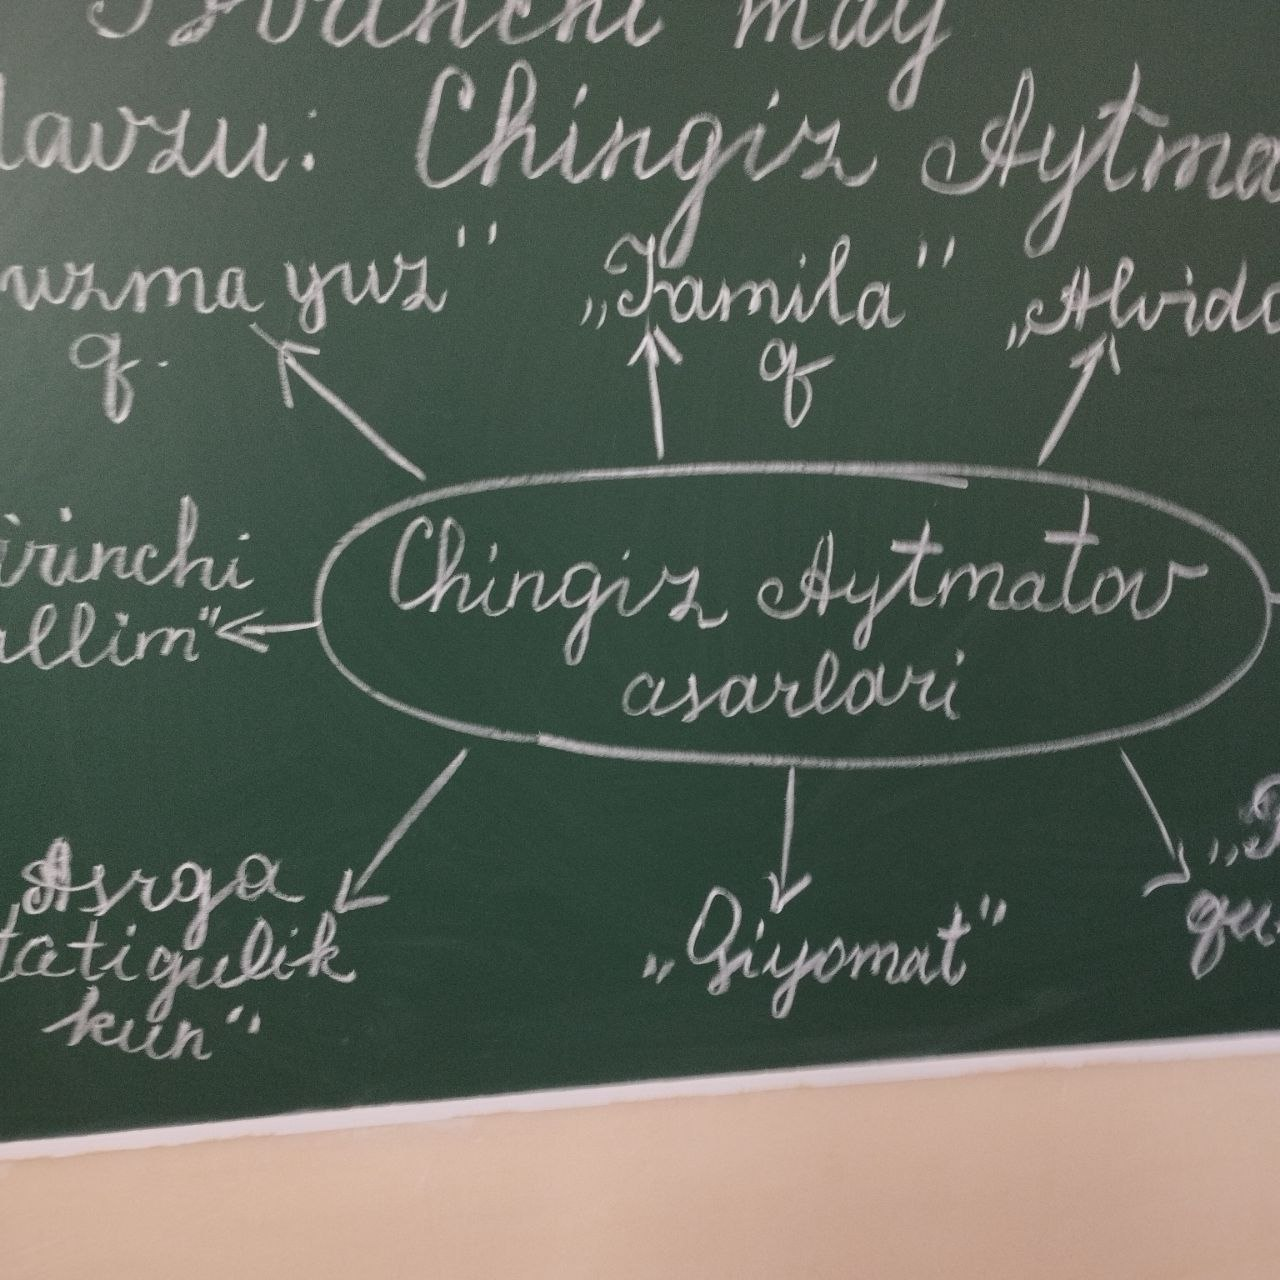 Birinchi may
lavzu: Chingiz Aytma
uzma yuz" „Jamila" „Alvido
q. q
irinchi
allim"
Chingiz Aytmatov
asarlari
„Asrga
tatigulik
kun"
„Qiyomat"
qu